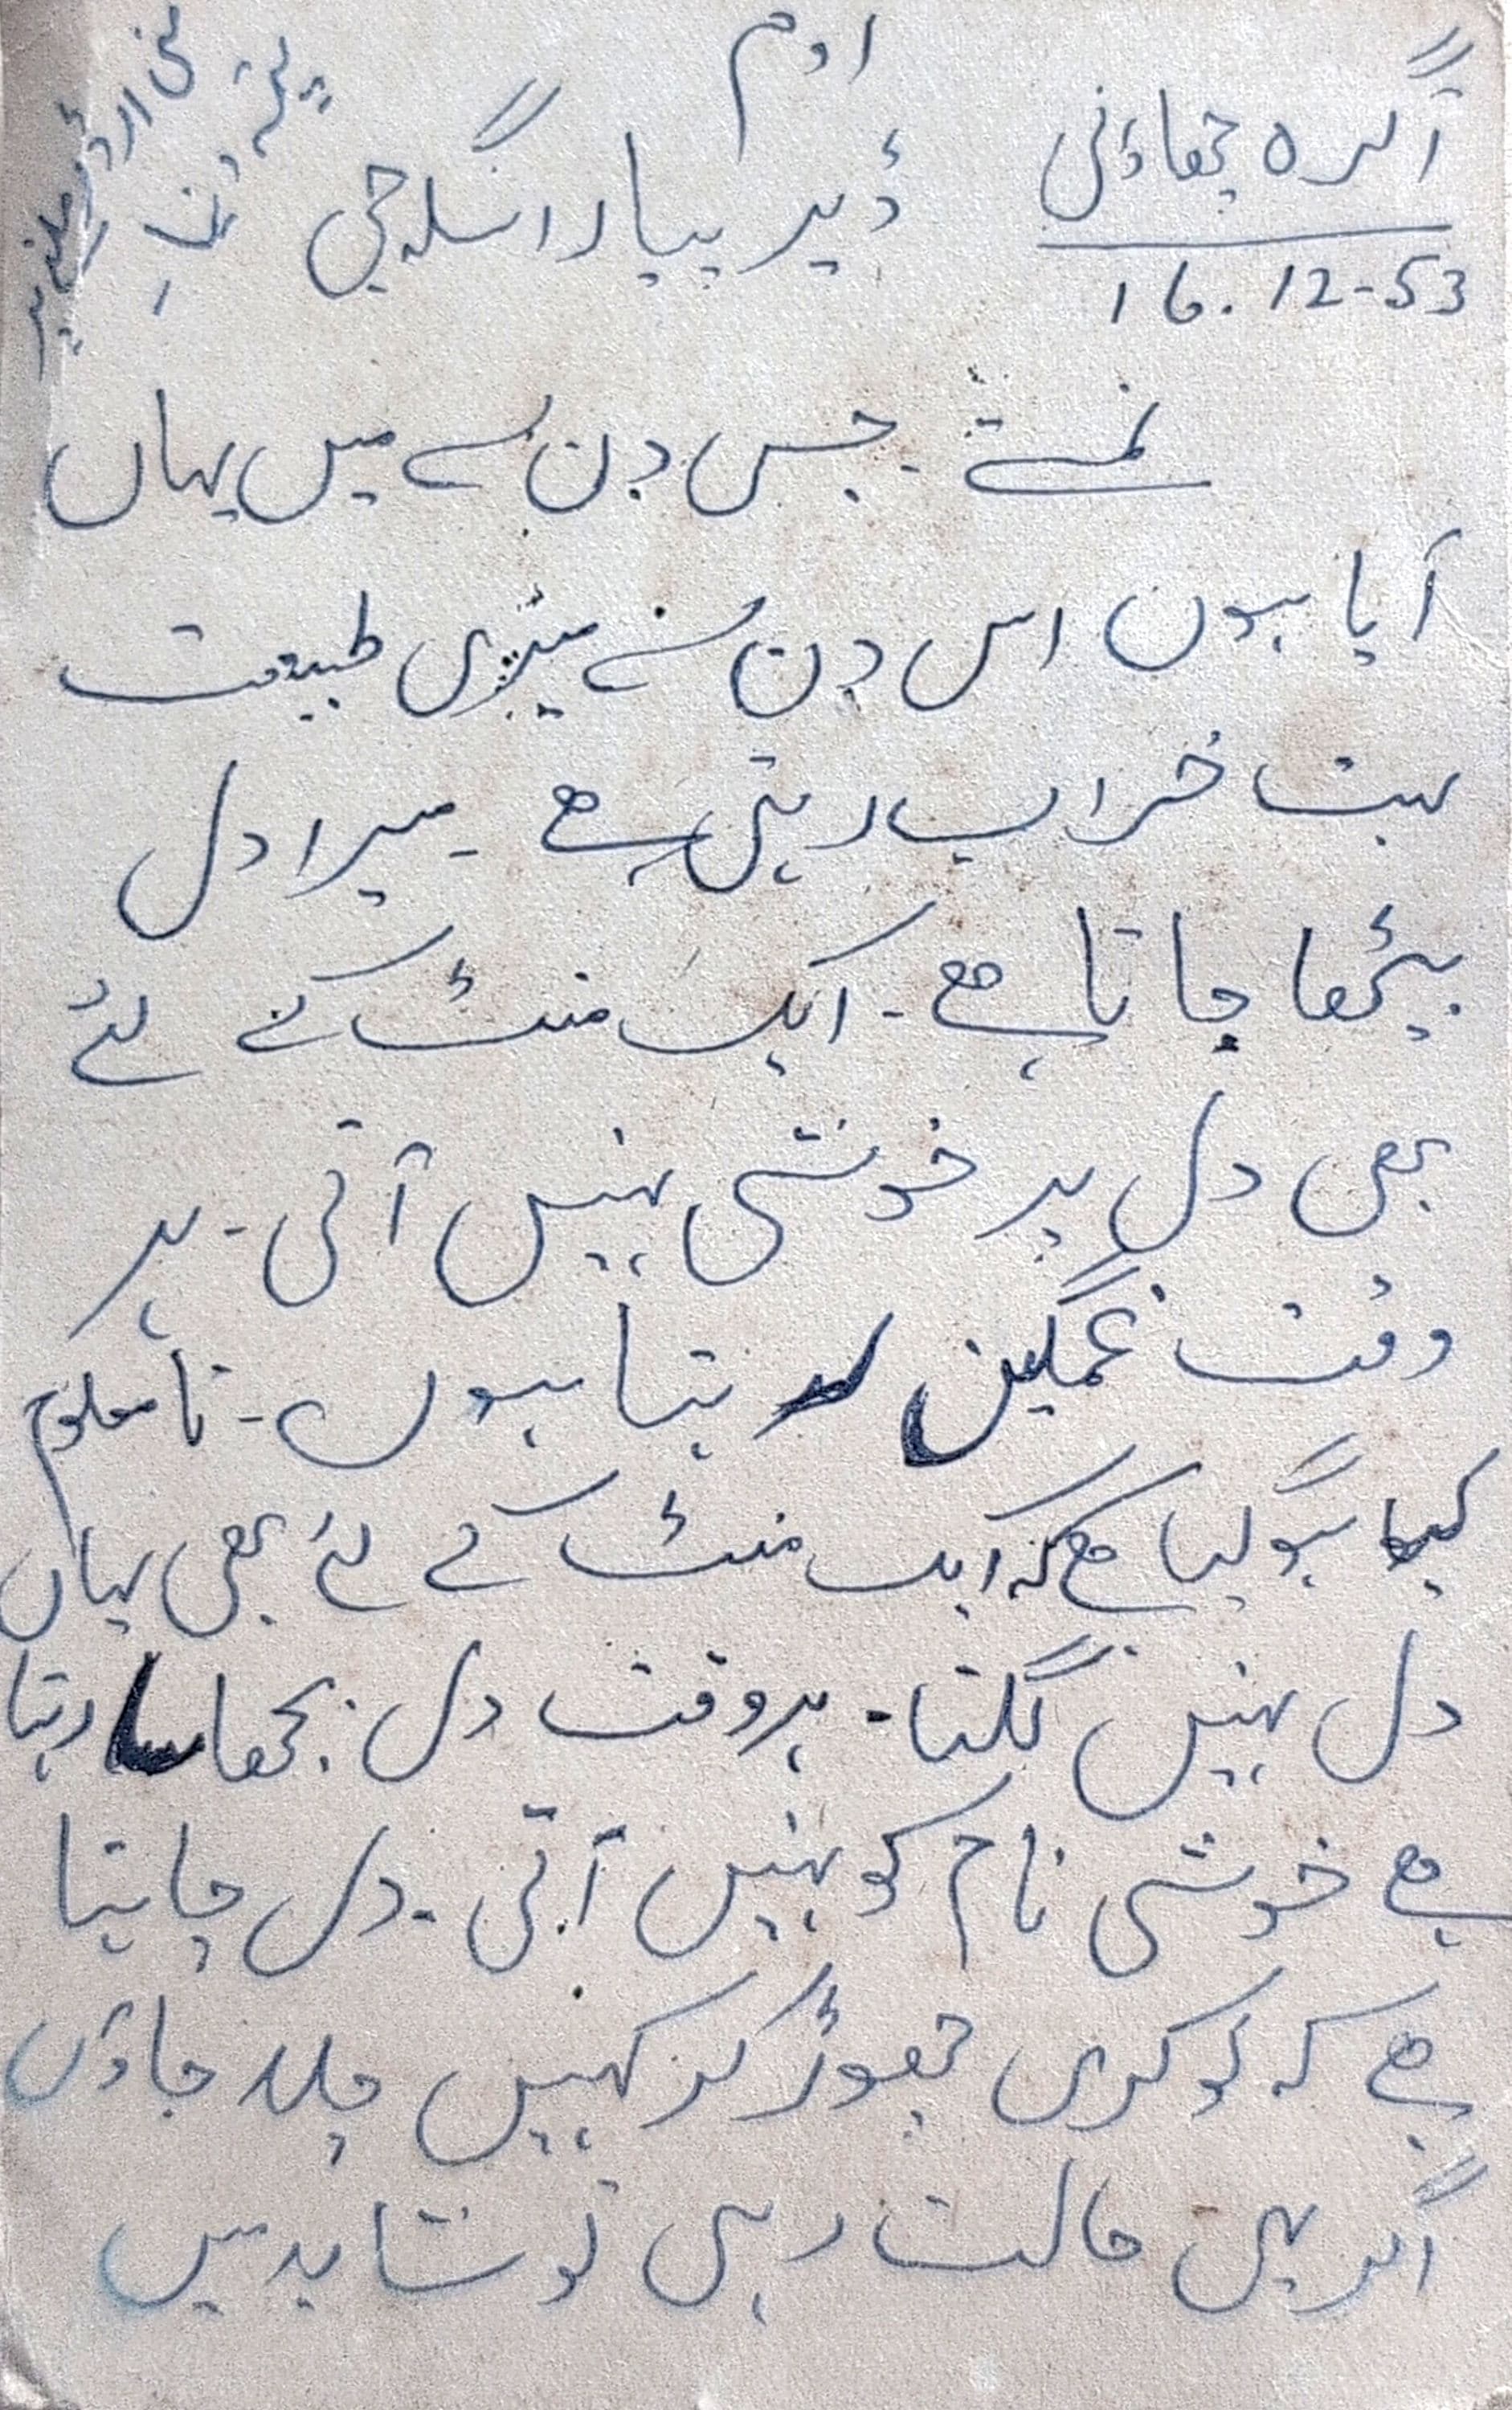 اوم
آگرہ چھاؤنی
16.12-53
ڈیر پیارا سنگھ جی
نمستے - جس دن سے میں یہاں
آیا ہوں اس دن سے میری طبیعت
بہت خراب رہتی ہے - میرا دل
بیٹھا جاتا ہے - ایک منٹ کے لئے
بھی دل پر خوشی نہیں آتی - ہر
وقت غمگین رہتا ہوں - نا معلوم
کیا ہو گیا ہے کہ ایک منٹ کے لئے بھی یہاں
دل نہیں لگتا - ہر وقت دل بجھا سا رہتا
ہے خوشی نام کو نہیں آتی - دل چاہتا
ہے کہ نوکری چھوڑ کر کہیں چلا جاؤں
اگر یہی حالت رہی تو شاید میں